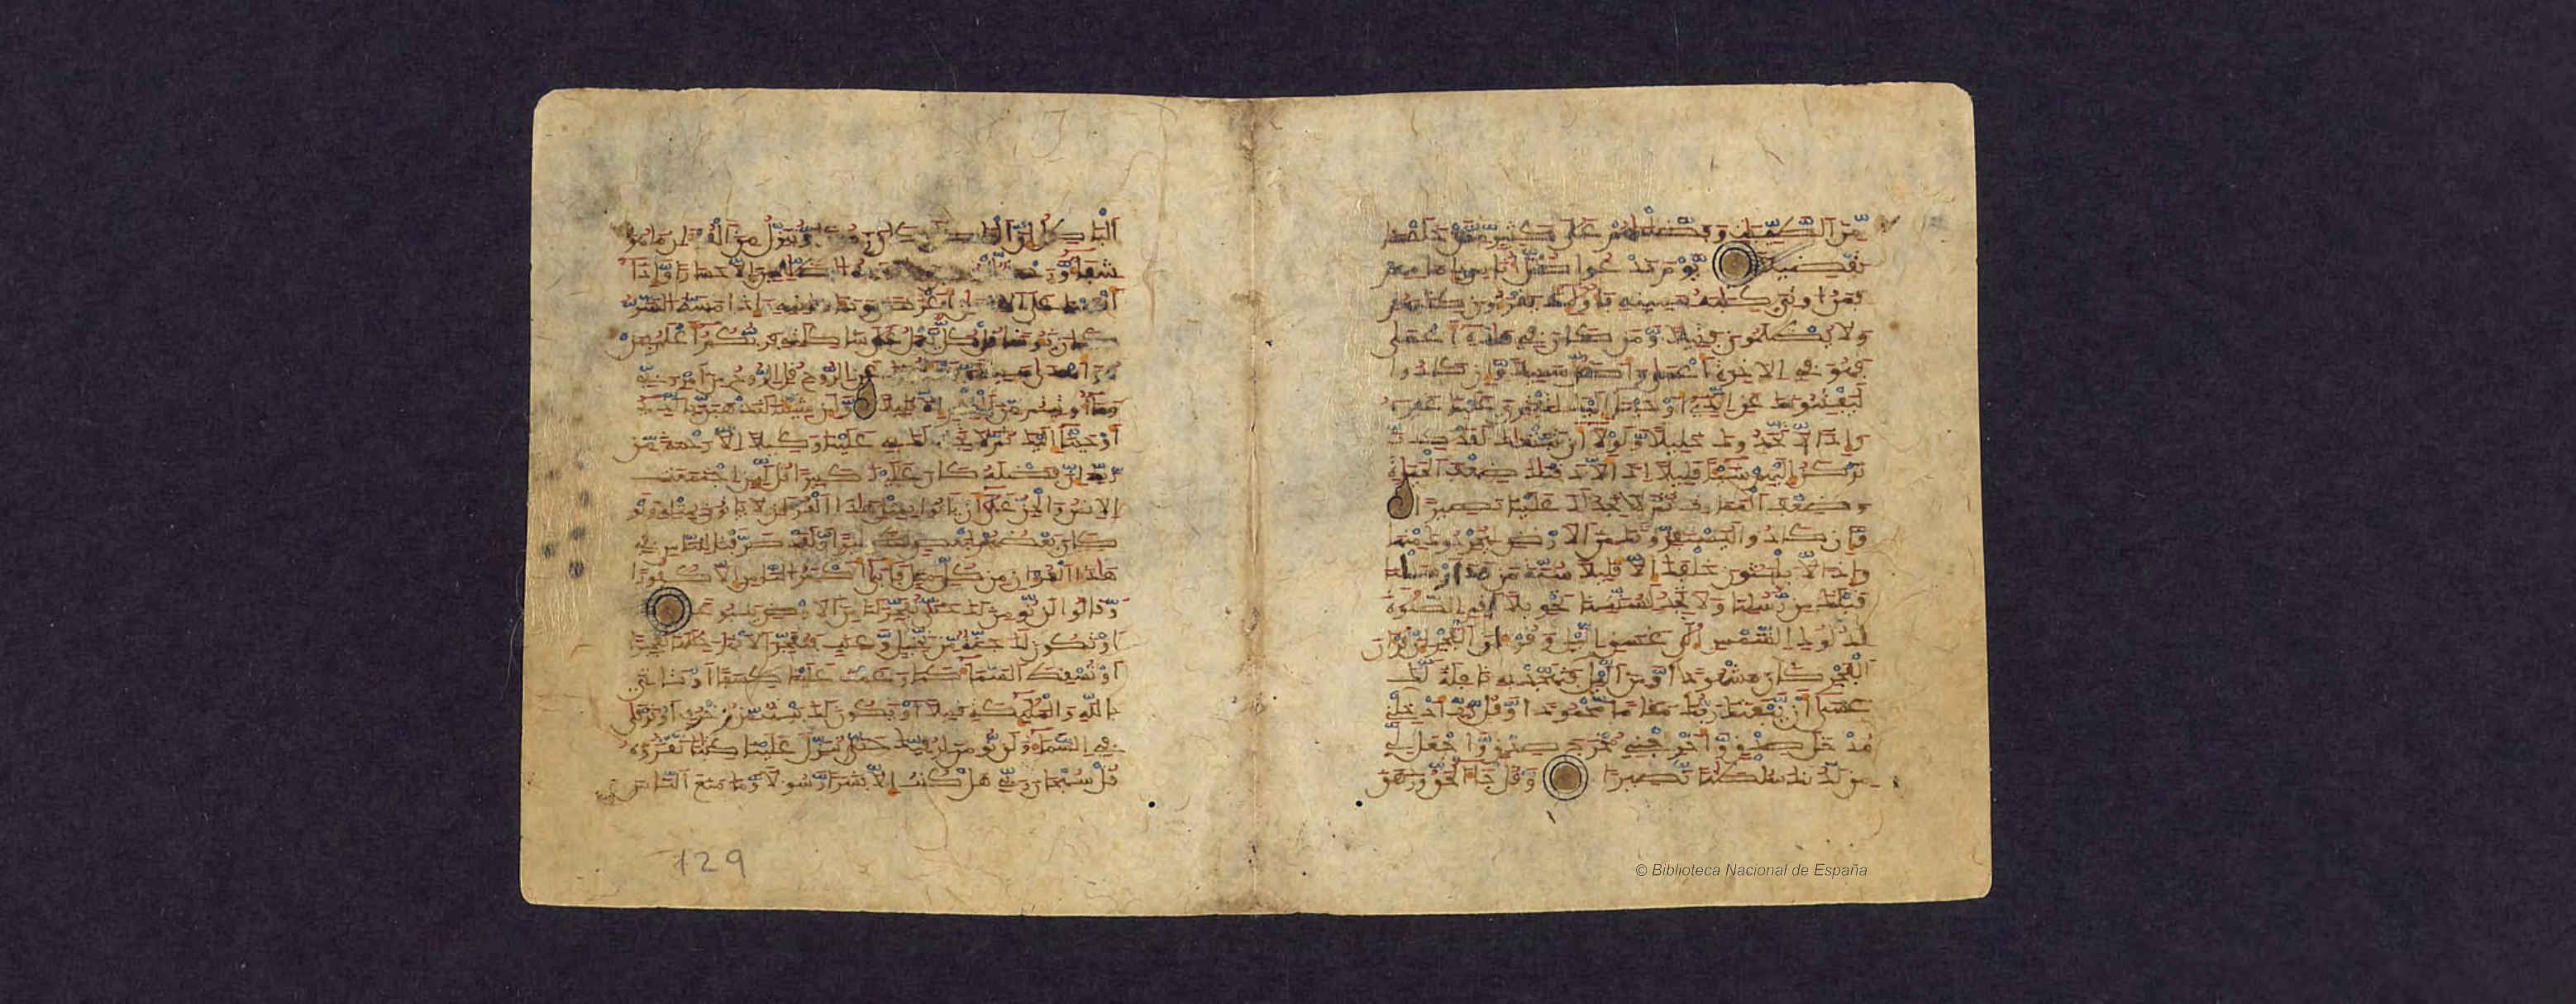 مّن الطيبات وفضلناهم على كثير ممن خلقنا
تفضيلا يوم ندعوا كل أناس بإمامهم
فمن أوتي كتابه بيمينه فأولئك يقرءون كتابهم
ولا يظلمون فتيلا ومن كان في هذه أعمى
فهو في الاخرة أعمى وأضل سبيلا وإن كادوا
ليفتنونك عن الذي أوحينا إليك لتفتري علينا غيره
وإذا لاتخذوك خليلا ولولا أن ثبتناك لقد كدت
تركن إليهم شيئا قليلا إذا لأذقناك ضعف الحيوة
وضعف الممات ثم لا تجد لك علينا نصيرا
وإن كادوا ليستفزونك من الارض ليخرجوك منها
وإذا لا يلبثون خلفك إلا قليلا سنة من قد ارسلنا
قبلك من رسلنا ولا تجد لسنتنا تحويلا أقم الصلوة
لدلوك الشمس إلى غسق اليل وقرءان الفجر إن قرءان
الفجر كان مشهودا ومن اليل فتهجد به نافلة لك
عسى أن يبعثك ربك مقاما محمودا وقل رب أدخلني
مدخل صدق وأخرجني مخرج صدق واجعل لي
من لدنك سلطنا نصيرا وقل جاء الحق وزهق
البطل إن كان وننزل من القرءان ما هو
شفاء الظلمين إلا خسارا وإذا
أنعمنا على الانسن أعرض ونئا بجانبه وإذا مسه الشر
كان يئوسا قل كل يعمل على شاكلته فربكم أعلم بمن
هو أهدى سبيلا عن الروح قل الروح من أمر ربي
وما أوتيتم من العلم إلا قليلا ولئن شئنا لنذهبن بالذي
أوحينا إليك ثم لا تجد لك به علينا وكيلا إلا رحمة من
ربك إن فضله كان عليك كبيرا قل لئن اجتمعت
الانس والجن على أن ياتوا بمثل هذا القرءان لا ياتون بمثله ولو
كان بعضهم لبعض ظهيرا ولقد صرفنا للناس في
هذا القرءان من كل مثل فأبى أكثر الناس إلا كفورا
وقالوا لن نومن لك حتى تفجر لنا من الارض ينبوعا
أو تكون لك جنة من نخيل وعنب فتفجر الانهر خللها تفجيرا
أو تسقط السماء كما زعمت علينا كسفا أو تاتي
بالله والملئكة قبيلا أو يكون لك بيت من زخرف أو ترقى
في السماء ولن نومن لرقيك حتى تنزل علينا كتبا نقرؤه
قل سبحان ربي هل كنت إلا بشرا رسولا وما منع الناس
129
© Biblioteca Nacional de España